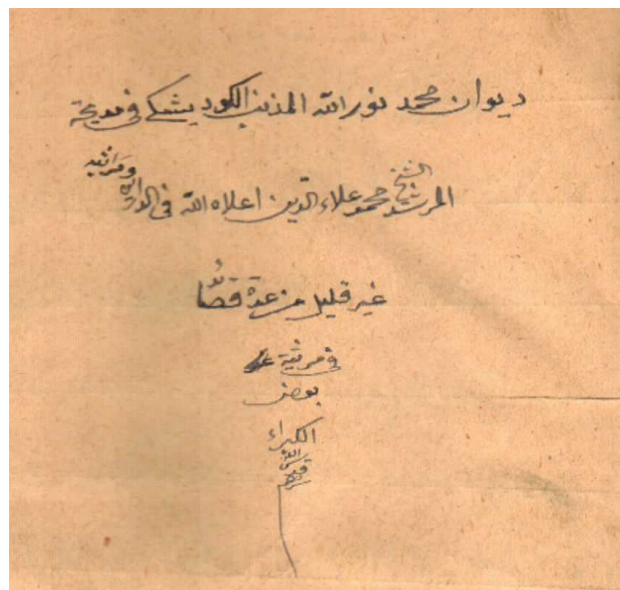 ديوان محمد نور الله المذنب الكورديشكي في مديحة
ومرثيه
المرشد الشيخ محمود علاء الدين اعلاه الله في الدارين
غير قليل من عدة قصائد
في مرثية
بعض
الكبراء
قدس الله
سرهم